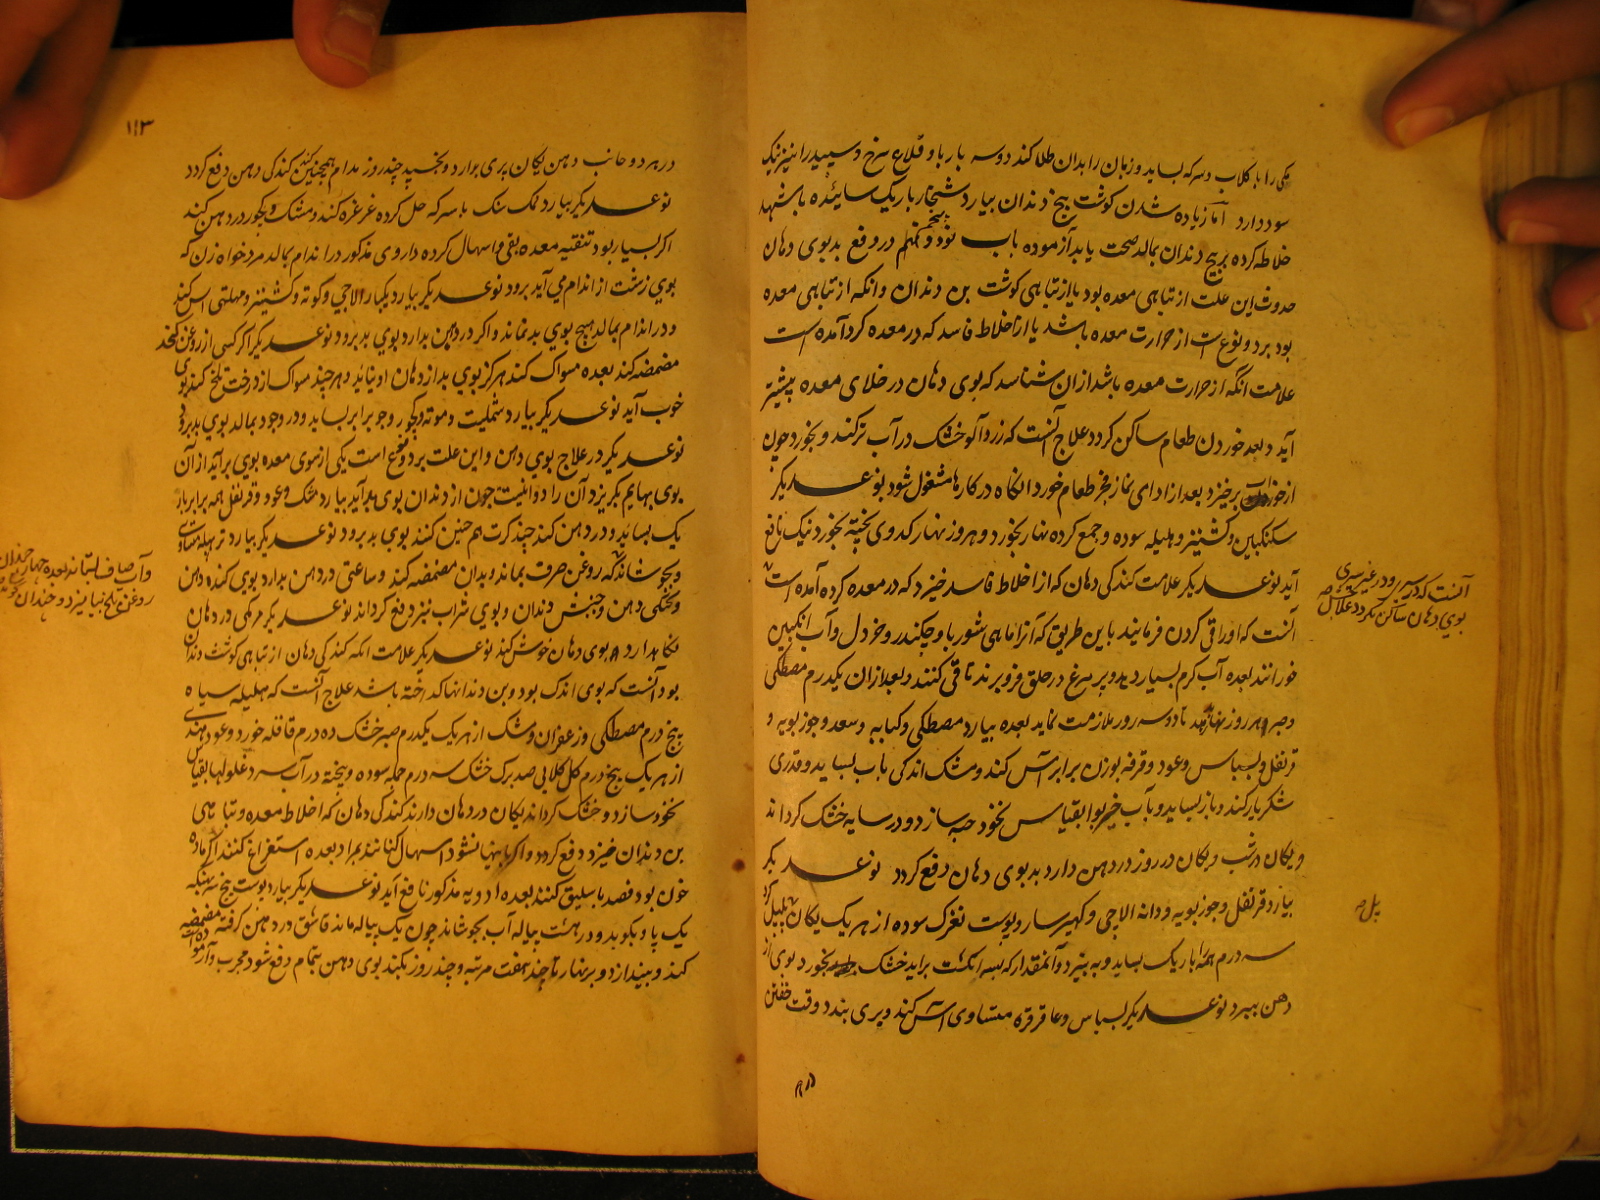 یکی را با کلاب و سرکه بساید و زبان را بدان طلا کند دو سه بار با و قلاع سرخ و سپید را نیز نیک
سود دارد اما زیاده شدن کوشت بیخ دندان بیارد شنجار باریک سائیده با شهد
خلاطه کرده بر بیخ دندان بمالد صحت یابد آزموده باب نود و پنجم در دفع بدبوی دهان
حدوث این علت از تباهی معده بود یا از تباهی کوشت بن دندان و انکه از تباهی معده
بود بر دو نوع است از حرارت معده باشد یا از اخلاط فاسد که در معده کرد آمده است
علامت انکه از حرارت معده باشد ازان شناسد که بوی دهان در خلای معده بیشتر
آید و بعد خوردن طعام ساکن کردد علاج آنست که زردآلو خشک در آب تر کند و بخورد چون
از خواب برخیزد بعد از ادای نماز فجر طعام خورد انکاه در کارها مشغول شود نوعدیکر
سکنکبین و کشنیز و هلیله سوده و جمع کرده نهار بخورد و هر روز نهار کدوی پخته بخورد نیک نافع
آید نوعدیکر علامت کندکی دهان که از اخلاط فاسد خیزد که در معده کرد آمده است
آنست که در سیری و در غیر سیری
بوی دهان ساکن نکردد علاج
آنست که او را قی کردن فرمایند باین طریق که آنرا ماهی شور با و چکندر و خردل و آب انکبین
خورانند بعده آب کرم بسیار دهد و پر مرغ در حلق فرو برند تا قی کنند و بعد ازان یکدرم مصطکی
و صبر هر روز نهار دهد تا دو سه روز ملازمت نماید بعده بیارد مصطکی و کبابه و سعد و جوز بویه و
قرنفل و بسباس و عود و قرفه بوزن برابر آس کند و مشک اندکی با آب بساید و قدری
شکر یار کند و باز بساید و بآب خیر بوا بقیاس نخود حبه سازد و در سایه خشک کرداند
و یکان در شب و یکان در روز در دهن دارد بدبوی دهان دفع کردد نوعدیکر
بیارد قرنفل و جوز بویه و دانه الاچی و کهیر سار و پوست نغزک سوده از هر یک یکان
سه درم همه را باریک بساید و به بیزد و آنمقدار که بسه انکشت براید خشک بخورد بوی از
دهن ببرد نوعدیکر بسباس و عاقرقره متساوی آس کند و بری بندد وقت خفتن
در
۱۱۳
در هر دو جانب دهن یکان بری برارد و بخسپد چند روز مدام همچنین کند کندکی دهن دفع کردد
نوعدیکر بیارد نمک سنک با سرکه حل کرده غرغره کند و مشک و کجور در دهن کند
اکر بسیار بود تنقیه معده بقی و اسهال کرده داروی مذکور در اندام بمالد مرد خواه زن که
بوی زشت از اندام می آید برود نوعدیکر بیارد یکبار الاچی و کوته و کشنیز و مهلتی آس کند
و در اندام بمالد هیچ بوی بد نماند و اکر در دهن بدارد بوی بد برود نوعدیکر اکر کسی از روغن کنجد
مضمضه کند بعده مسواک کند هرکز بوی بد از دهان او نیاید و هر چند مسواک از درخت تلخ کند بوی
خوب آید نوعدیکر بیارد شملیت و موته و کجور و جو برابر بساید و در وجود بمالد بوی بد برود
نوعدیکر در علاج بوی دهن و این علت بر دو نوع است یکی از سوی معده بوی برآید از آن
بوی بهایم بکریزد آن را دوا نیست چون از دندان بوی بد آید بیارد مشک و عود و قرنفل همه برابر بار
یک بساید و در دهن کند چند کرت هم چنین کنند بوی بد برود نوعدیکر بیارد تر پهله متساوی
وآب صاف بستاند بعده چهار چندان
روغن تلخ بیامیزد و چندان
و بجوشاند که روغن صرف بماند و بدان مضمضه کند و ساعتی در دهن بدارد بوی کنده دهن
و خستکی دهن و جنبش دندان و بوی شراب نیز دفع کرداند نوعدیکر مرمکی در دهان
نکاهدارد بوی دهان خوش کند نوعدیکر علامت انکه کندکی دهان از تباهی کوشت دندان
بود آنست که بوی اندک بود و بن دندانها کداخته باشد علاج آنست که هلیله سیاه
پنج درم مصطکی و زعفران و مشک از هر یک یکدرم صبر خشک ده درم قاقله خورد و عود هندی
از هر یک پنج درم کل کلابی صد برک خشک سه درم جمله سوده و بیخته در آب سرد غلولها بقیاس
نخود سازد و خشک کرداند یکان در دهان دارند کندکی دهان که اخلاط معده و تباهی
بن دندان خیزد دفع کردد و اکر باینها نشود اسهال کنانند بمراد بعده استفراغ کنند اکر ماده
خون بود فصد باسلیق کنند بعده ادویه مذکور نافع آید نوعدیکر بیارد پوست بیخ
یک پاو بکوبد و در هشت پیاله آب بجوشاند چون یک پیاله ماند قاشق در دهن کرفته مضمضه
کند و بیندازد و بر نهار تا چند هفت مرتبه و چند روز بکند بوی دهن بتمام دفع شود مجرب و آزموده است